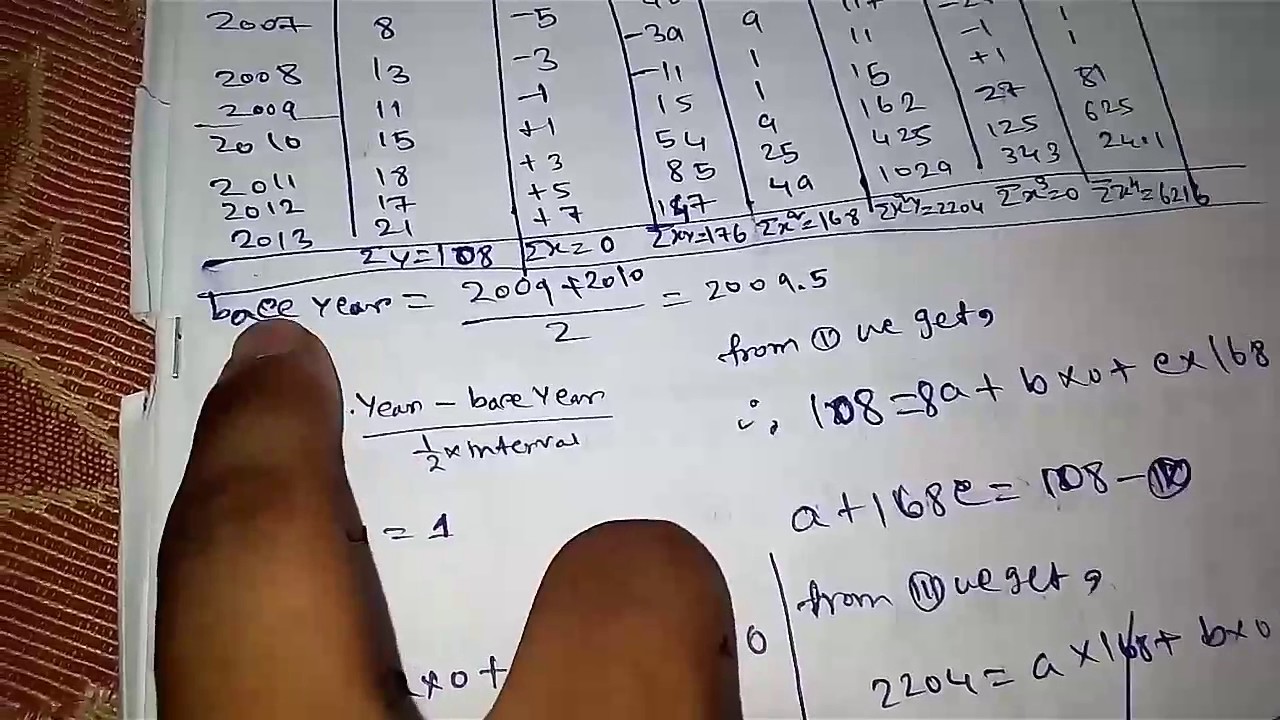 2007 8 -5 9 117
2008 13 -3 -39 1 11 -1 1
2009 11 -1 -11 1 15 +1 1
2010 15 +1 15 9 162 27 81
2011 18 +3 54 25 425 125 625
2012 17 +5 85 49 1029 343 2401
2013 21 +7 147
Σy=108 Σx=0 Σxy=176 Σx²=168 Σx²y=2204 Σx³=0 Σx⁴=6216
base year = (2009+2010)/2 = 2009.5
Year - base year
½ × interval
= 1
×0+
0
from ⑪ we get,
∴, 108=8a+b×0+c×168
a+168c=108-
from ⑪ we get,
2204=a×168+b×0